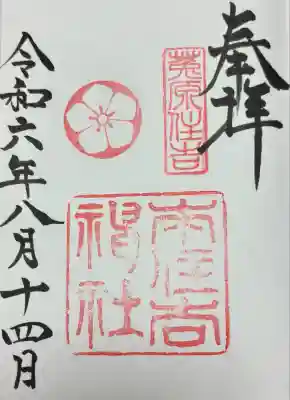 奉拝
菟原住吉
本住吉
神社
令和六年八月十四月